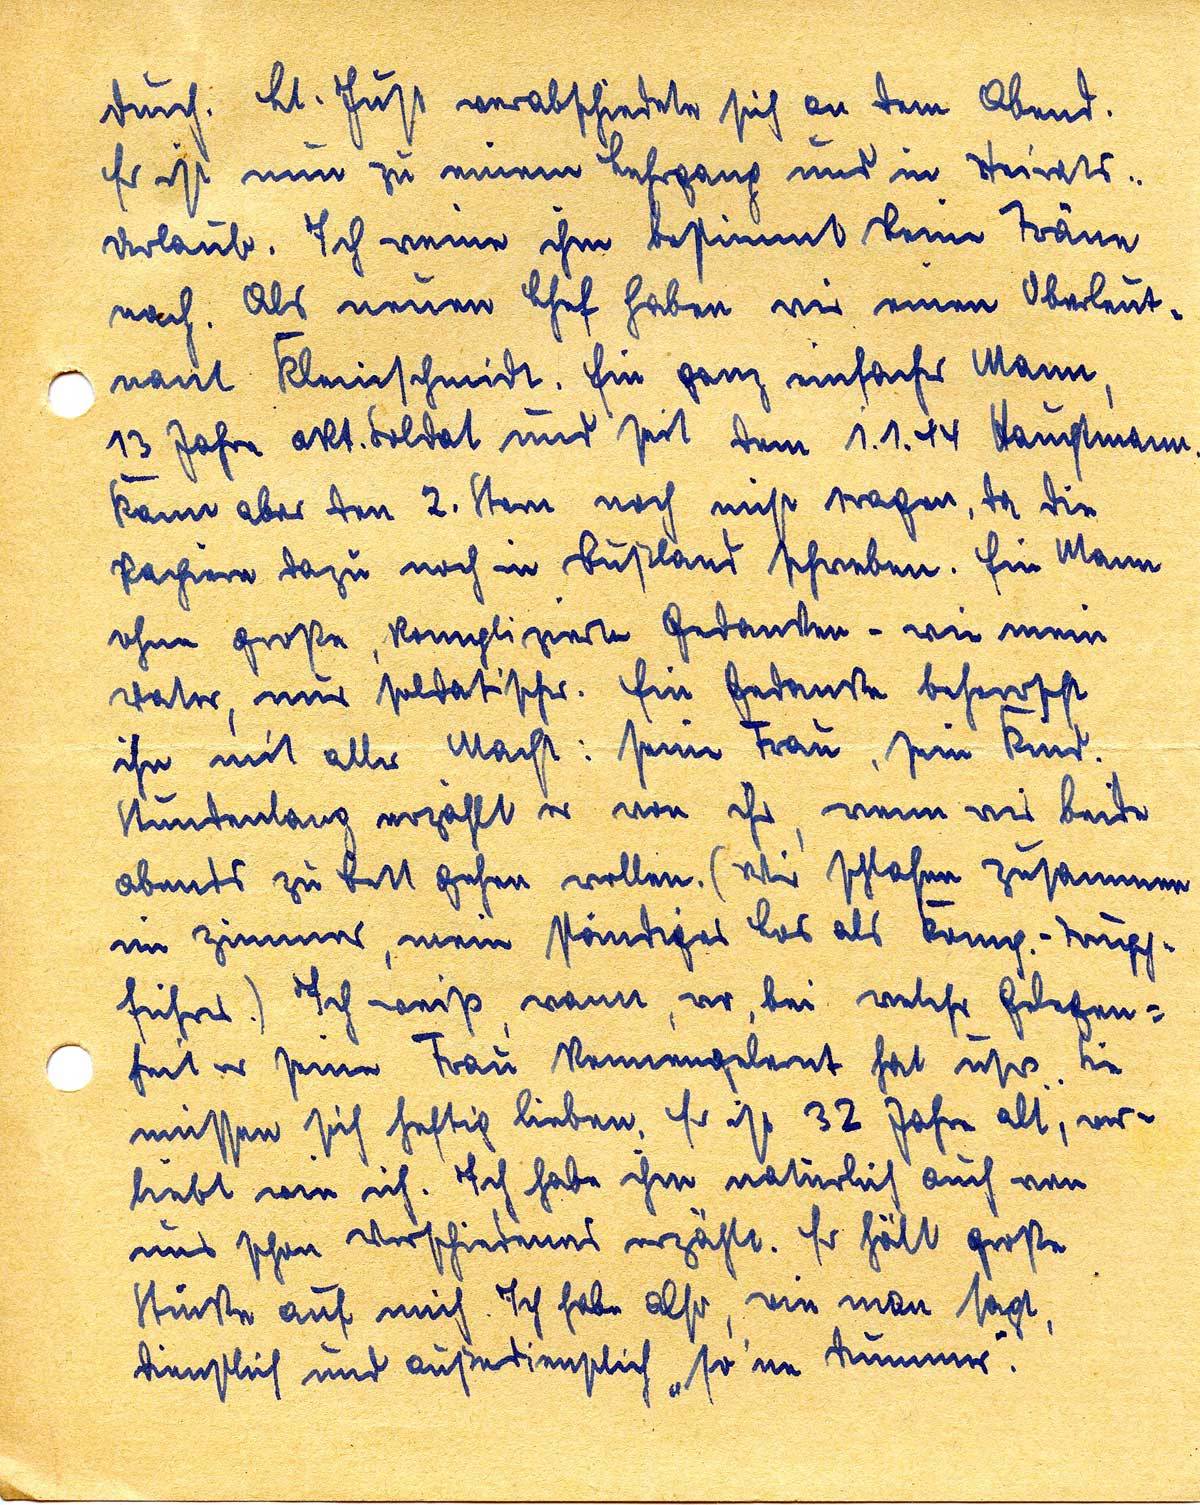 durch. Lt. Just verabschiedete sich an dem Abend.
Er ist nun zu einem Lehrgang und in Heirats-
urlaub. Ich weine ihm bestimmt keine Träne
nach. Als neuen Chef haben wir einen Oberleut-
nant Kleinschmidt. Ein ganz einfacher Mann,
13 Jahre akt. Soldat und seit dem 1.1.44 Hauptmann.
Kann aber den 2. Stern noch nicht tragen, da die
Papiere dazu noch in Rußland schweben. Ein Mann
ohne große, komplizierte Gedanken - wie mein
Vater, nur soldatischer. Ein Gedanke beherrscht
ihn mit aller Macht: seine Frau, sein Kind.
Stundenlang erzählt er von ihr, wenn wir beide
abends zu Bett gehen wollen. (Wir schlafen zusammen
im Zimmer, mein ständiges Los als Komp.-Trupp-
führer.) Ich weiß, wann, wo, bei welcher Gelegen=
heit er seine Frau kennengelernt hat usw. Sie
müssen sich heftig lieben. Er ist 32 Jahre alt, ver-
liebt wie ich. Ich habe ihm natürlich auch von
uns schon Verschiedenes erzählt. Er hält große
Stücke auf mich. Ich habe also, wie man sagt,
dienstlich und außerdienstlich „so'ne Nummer".